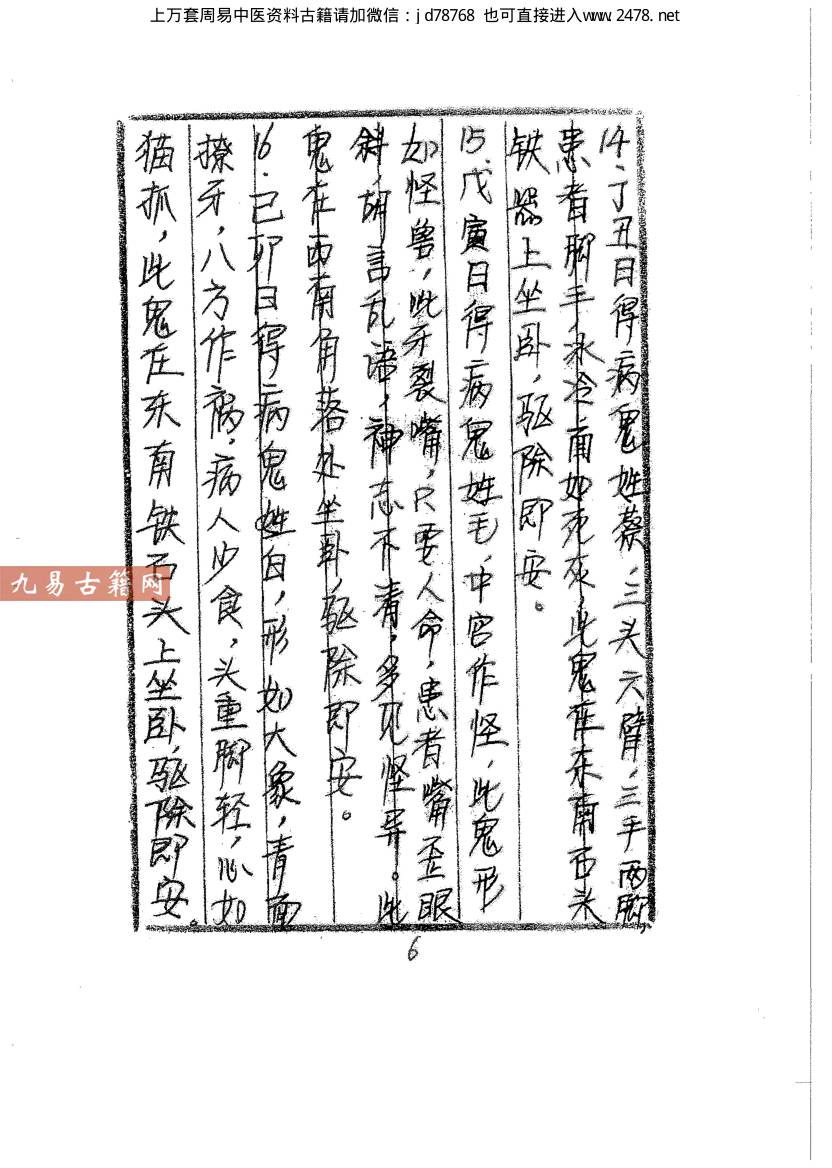 上万套周易中医资料古籍请加微信：jd78768 也可直接进入www.2478.net
14、丁丑日得病鬼姓蔡，三头六臂，三手两脚，
患者脚手永冷，面如死灰，此鬼在东南石头
铁器上坐卧，驱除即安。
15、戊寅日得病鬼姓毛，中宫作怪，此鬼形
如怪兽，呲牙裂嘴，只要人命，患者嘴歪眼
斜，胡言乱语，神志不清，多见怪异。此
鬼在西南角落处坐卧，驱除即安。
16．己卯日得病鬼姓白，形如大象，青面
撩牙，八方作祸，病人少食，头重脚轻，心如
猫抓，此鬼在东南铁石头上坐卧，驱除即安。
九易古籍网
6